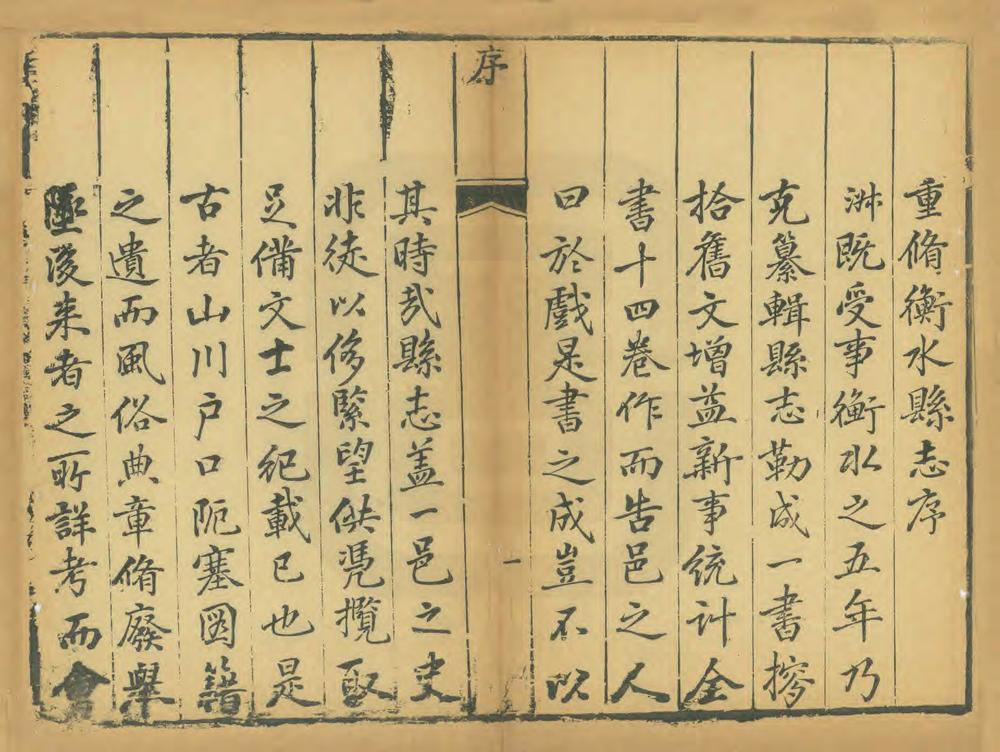 重脩衡水縣志序
淋既受事衡水之五年乃
克纂輯縣志勒成一書摉
拾舊文增益新事統計全
書十四卷作而告邑之人
曰於戲是書之成豈不以
序
一
其時哉縣志盖一邑之史
非徒以侈緊望供凴攬取
足備文士之紀載已也是
古者山川户口阨塞圖籍
之遺而風俗典章脩廢舉
墜後来者之所詳考而會